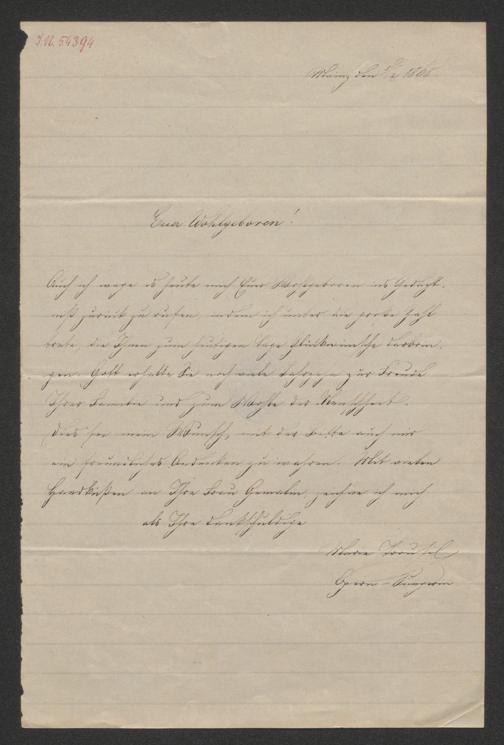 I.N. 54394
Mainz den
Euer Wohlgeboren!
Auch ich wage es heute mich Euer Wohlgeboren ins Gedächt-
niß zurück zu rufen, indem ich unter die große Zahl
trete, die Ihnen zum heutigen Tage Glückwünsche darbrin-
gen. Gott erhalte Sie noch viele Jahre zur Freude
Ihrer Familie und zum Wohle der Menschheit.
Dies sei mein Wunsch, mit der Bitte auch mir
ein freundliches Andenken zu wahren. Mit vielen
Handküßen an Ihre Frau Gemalin, zeichne ich mich
als Ihre dankschuldige
Marie
Opern-Sängerin